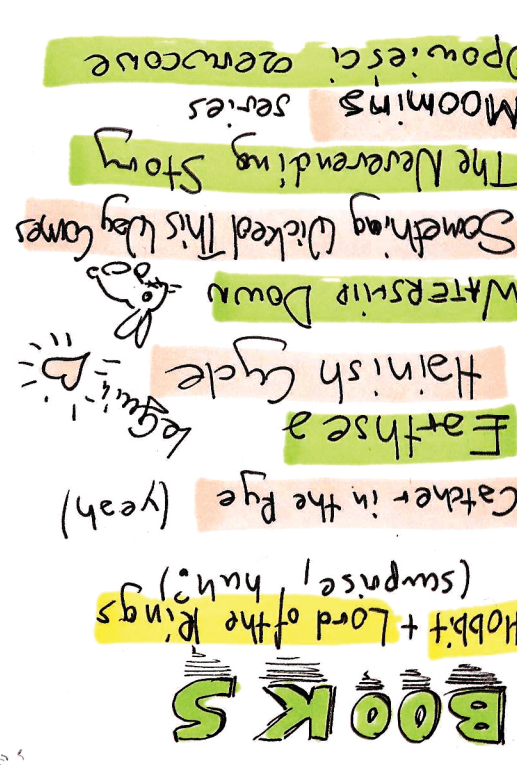 BOOKS
Hobbit + Lord of the Rings
(surprise, huh?)
Catcher in the Rye (yeah)
Earthsea
LeGuin
Hainish Cycle
WATERSHIP DOWN
Something Wicked This Way Comes
The Neverending Story
Moomins series
Opowieści czerwcowe